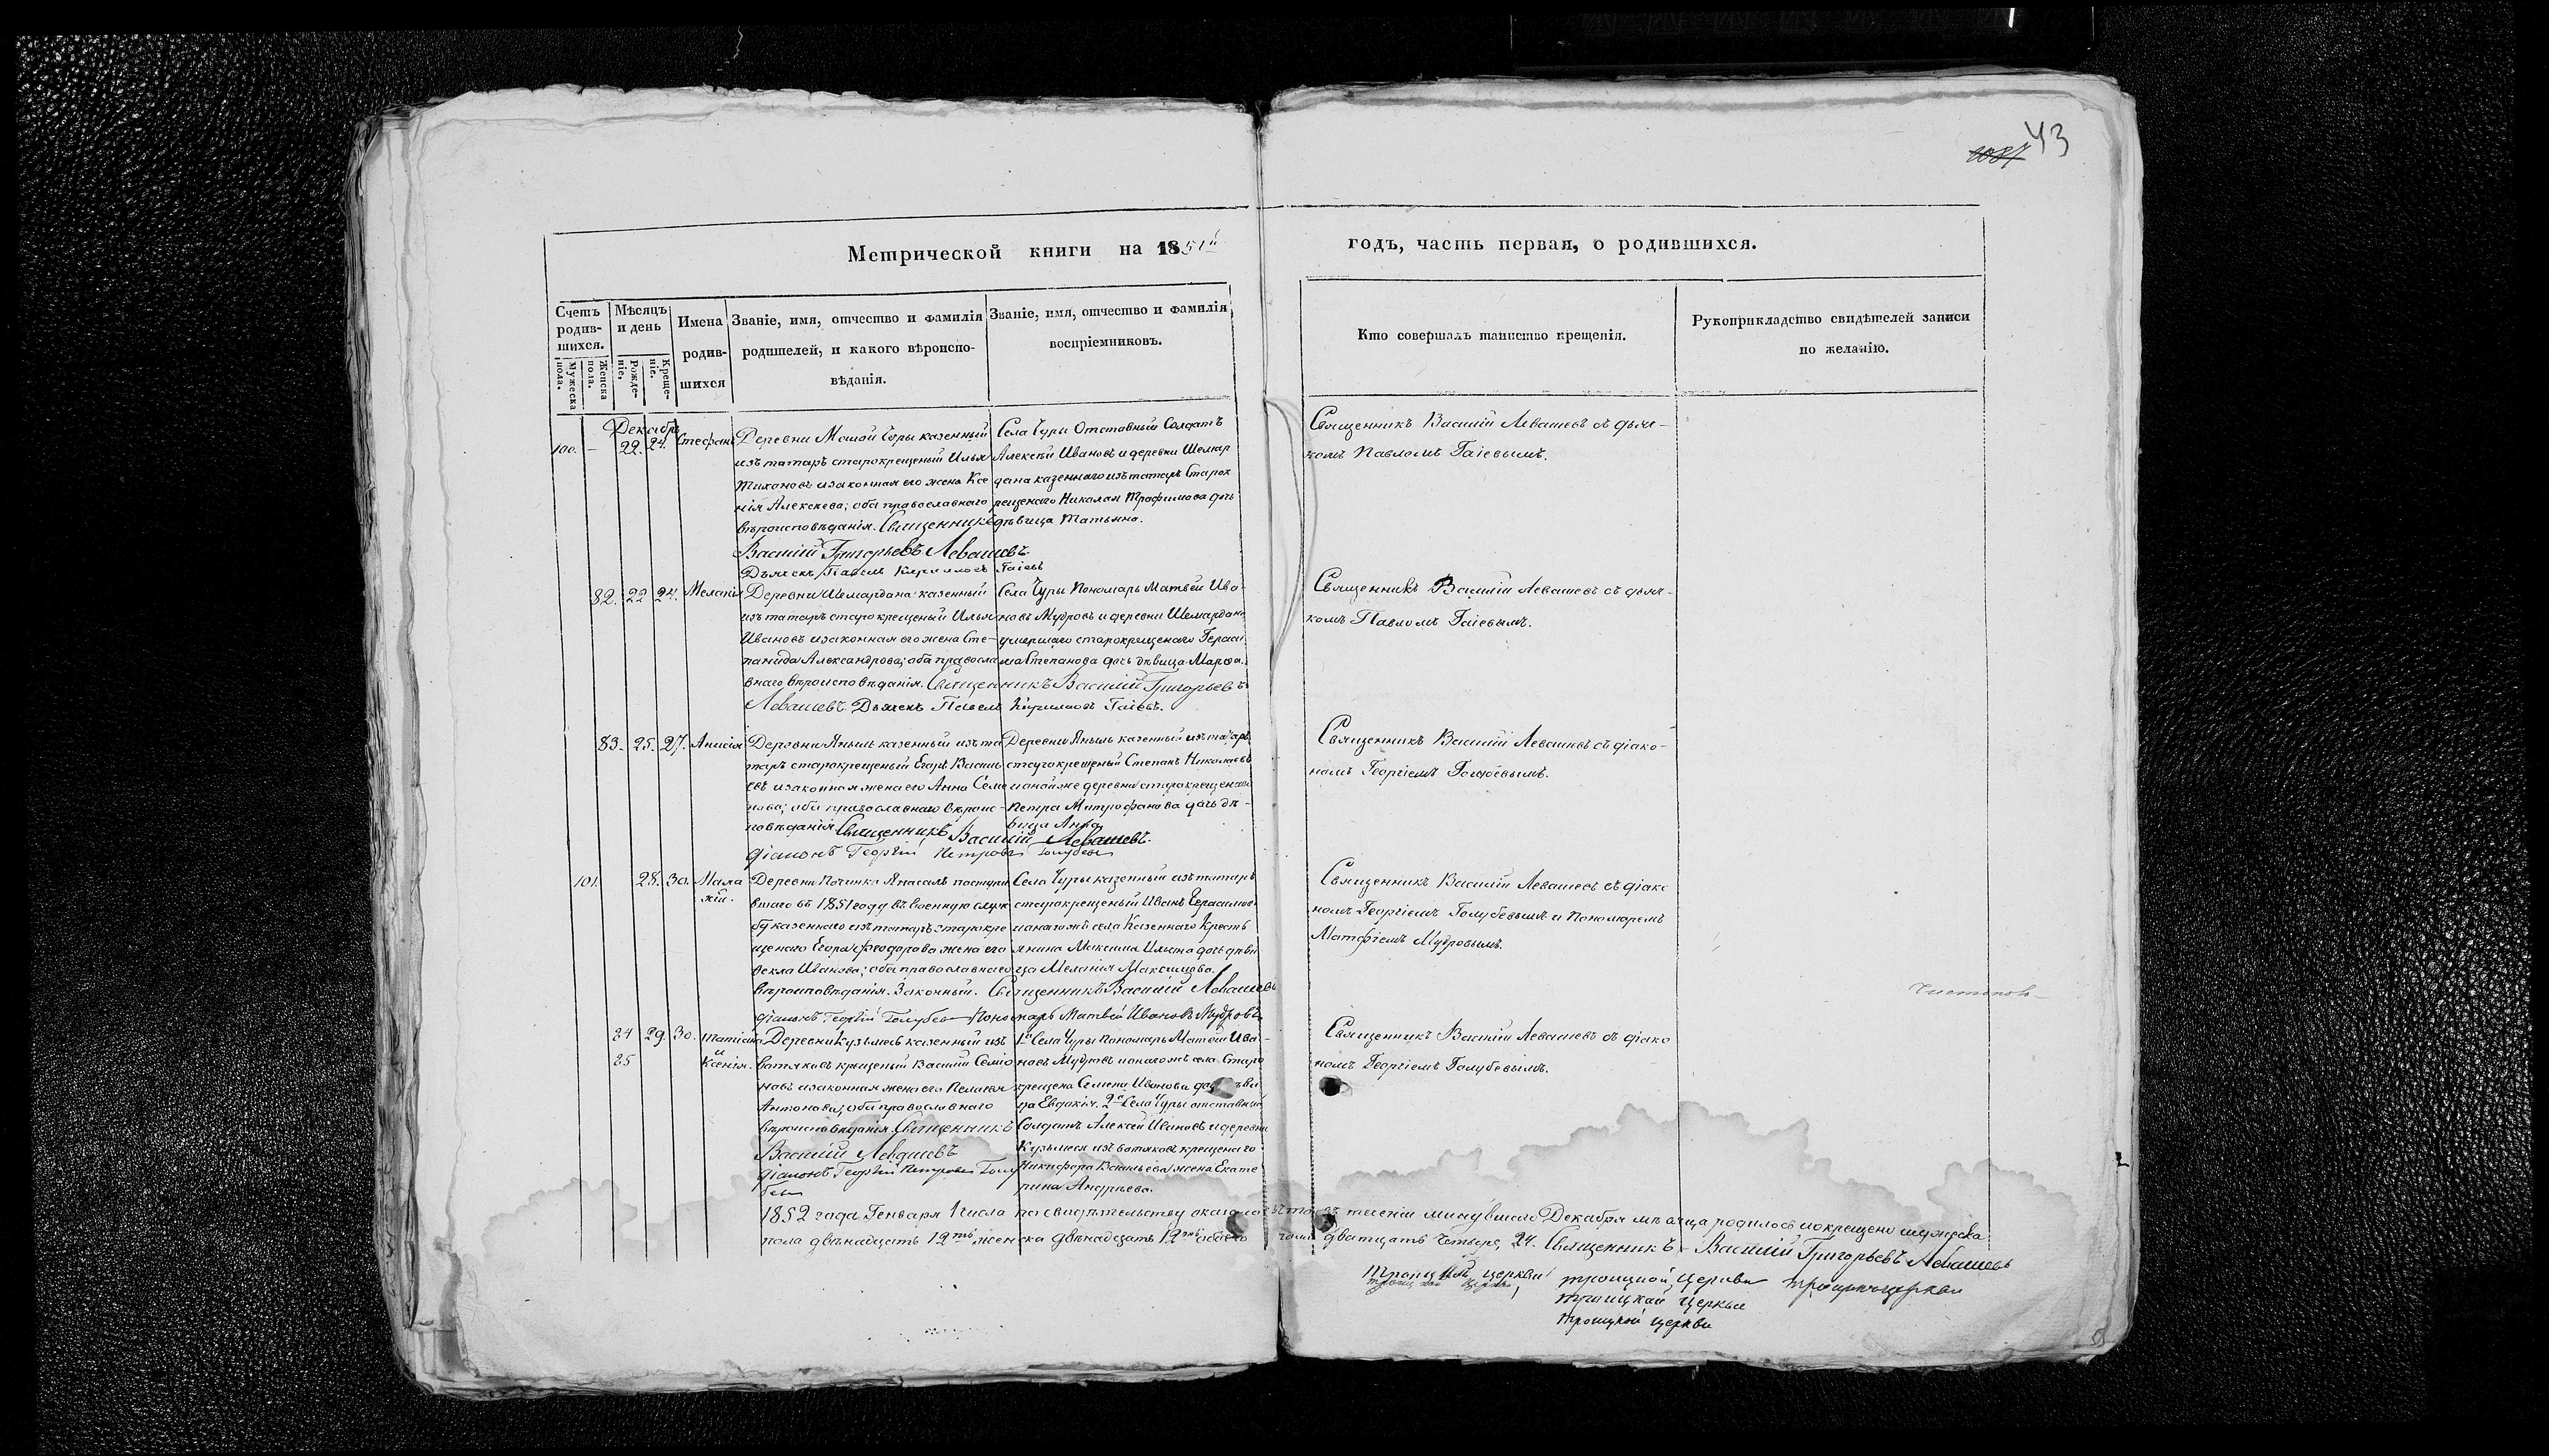 43
1087
Метрической книги на 1851й
годъ, часть первая, о родившихся.
Счетъ родившихся.
Мужеска пола.
Женска пола.
Мѣсяцъ и день
Рожденіе.
Крещеніе.
Имена родившихся
Званіе, имя, отчество и фамилія родителей, и какого вѣроисповѣданія.
Званіе, имя, отчество и фамилія воспріемниковъ.
Кто совершалъ таинство крещенія.
Рукоприкладство свидѣтелей записи по желанію.
Декабрь
100. – 22. 24. Стефанъ
Деревни Малой Чуры казенный
изъ татаръ старокрещеный Илья
Тихоновъ и законная его жена Ксе
нія Алексеева; оба православнаго
вѣроисповѣданія. Священникъ
Василій Григорьевъ Левашевъ.
Дьячекъ Павелъ Кириловъ Гаіевъ
Села Чуры Отставный Солдатъ
Алексѣй Ивановъ и деревни Шемар
дана казеннаго изъ татаръ Старок
рещенаго Николая Трофимова дочь
дѣвица Татьяна.
Священникъ Василій Левашевъ съ дьяч-
комъ Павломъ Гаіевымъ.
82. 22 24. Меланія
Деревни Шемардана казенный
изъ татаръ старокрещеный Илья
Ивановъ и законная его жена Сте-
панида Александрова; оба правосла
внаго вѣроисповѣданія. Священникъ Василій Григорьевъ
Левашевъ. Дьячекъ Павелъ Кириловъ Гаіевъ.
Села Чуры Пономарь Матвѣй Ива-
новъ Мудровъ и деревни Шемардана
умершаго старокрещенаго Гераси
ма Степанова дочь дѣвица Марѳа.
Священникъ Василій Левашевъ съ дьяч-
комъ Павломъ Гаіевымъ.
83. 25. 27. Анисія
Деревни Яныль казенный изъ та
таръ старокрещеный Егоръ Василь
евъ и законная жена его Анна Семе
нова; оба православнаго вѣроис-
повѣданія. Священникъ Василій Левашевъ.
Діаконъ Георгій Петровъ Голубевъ
Деревни Яныль казенный изъ татаръ
старокрещеный Степанъ Николаевъ
и оной же деревни старокрещенаго
Петра Митрофанова дочь дѣ-
вица Анна
Священникъ Василій Левашевъ съ діако-
номъ Георгіемъ Голубевымъ.
101. 28. 30. Мала
хій.
Деревни Починка Янасалъ поступи
вшаго въ 1851 году въ военную служ
бу казеннаго изъ татаръ старокре
щенаго Егора Феодорова жена его
Ѳекла Иванова; оба православнаго
вѣроисповѣданія. Законный. Священникъ Василій Левашевъ
діаконъ Георгій Голубевъ Пономарь Матвѣй Ивановъ Мудровъ
Села Чуры казенный изъ татаръ
старокрещеный Иванъ Герасимовъ
и онаго жъ села Казеннаго Кресть
янина Максима Ильина дочь дѣви
ца Меланія Максимова.
Священникъ Василій Левашевъ съ діако
номъ Георгіемъ Голубевымъ и пономаремъ
Матфіемъ Мудровымъ.
84 29. 30. Татіана
85 и Ксенія.
Деревни Кузьмесь казенный изъ
вотяковъ крещеный Василій Семіо
новъ и законная жена его Пелагея
Антонова; оба православнаго
вѣроисповѣданія. Священникъ
Василій Левашевъ
діаконъ Георгій Петровъ Голу
бевъ
1е Села Чуры пономарь Матвѣй Ива-
новъ Мудровъ и онаго жъ села Старо
крещена Семена Иванова дочь дѣви
ца Евдокія. 2е Села Чуры отставный
Солдатъ Алексѣй Ивановъ и деревни
Кузьмеси изъ вотяковъ крещенаго
Никифора Васильева жена Екате
рина Андреева.
Священникъ Василій Левашевъ съ діако
номъ Георгіемъ Голубевымъ.
1852 года Генваря 1 числа по свидѣтельству оказалось что въ теченіи минувшаго Декабря мѣсяца родилось и крещено мужеска
пола двѣнадцать 12ть женска двѣнадцать 12ть обоего пола двадцать четыре, 24. Священникъ Василій Григорьевъ Левашевъ
троицкой церкви троицкой церкви троицкой церкви
троицкой церкви
троицкой церкви
троицкой церкви